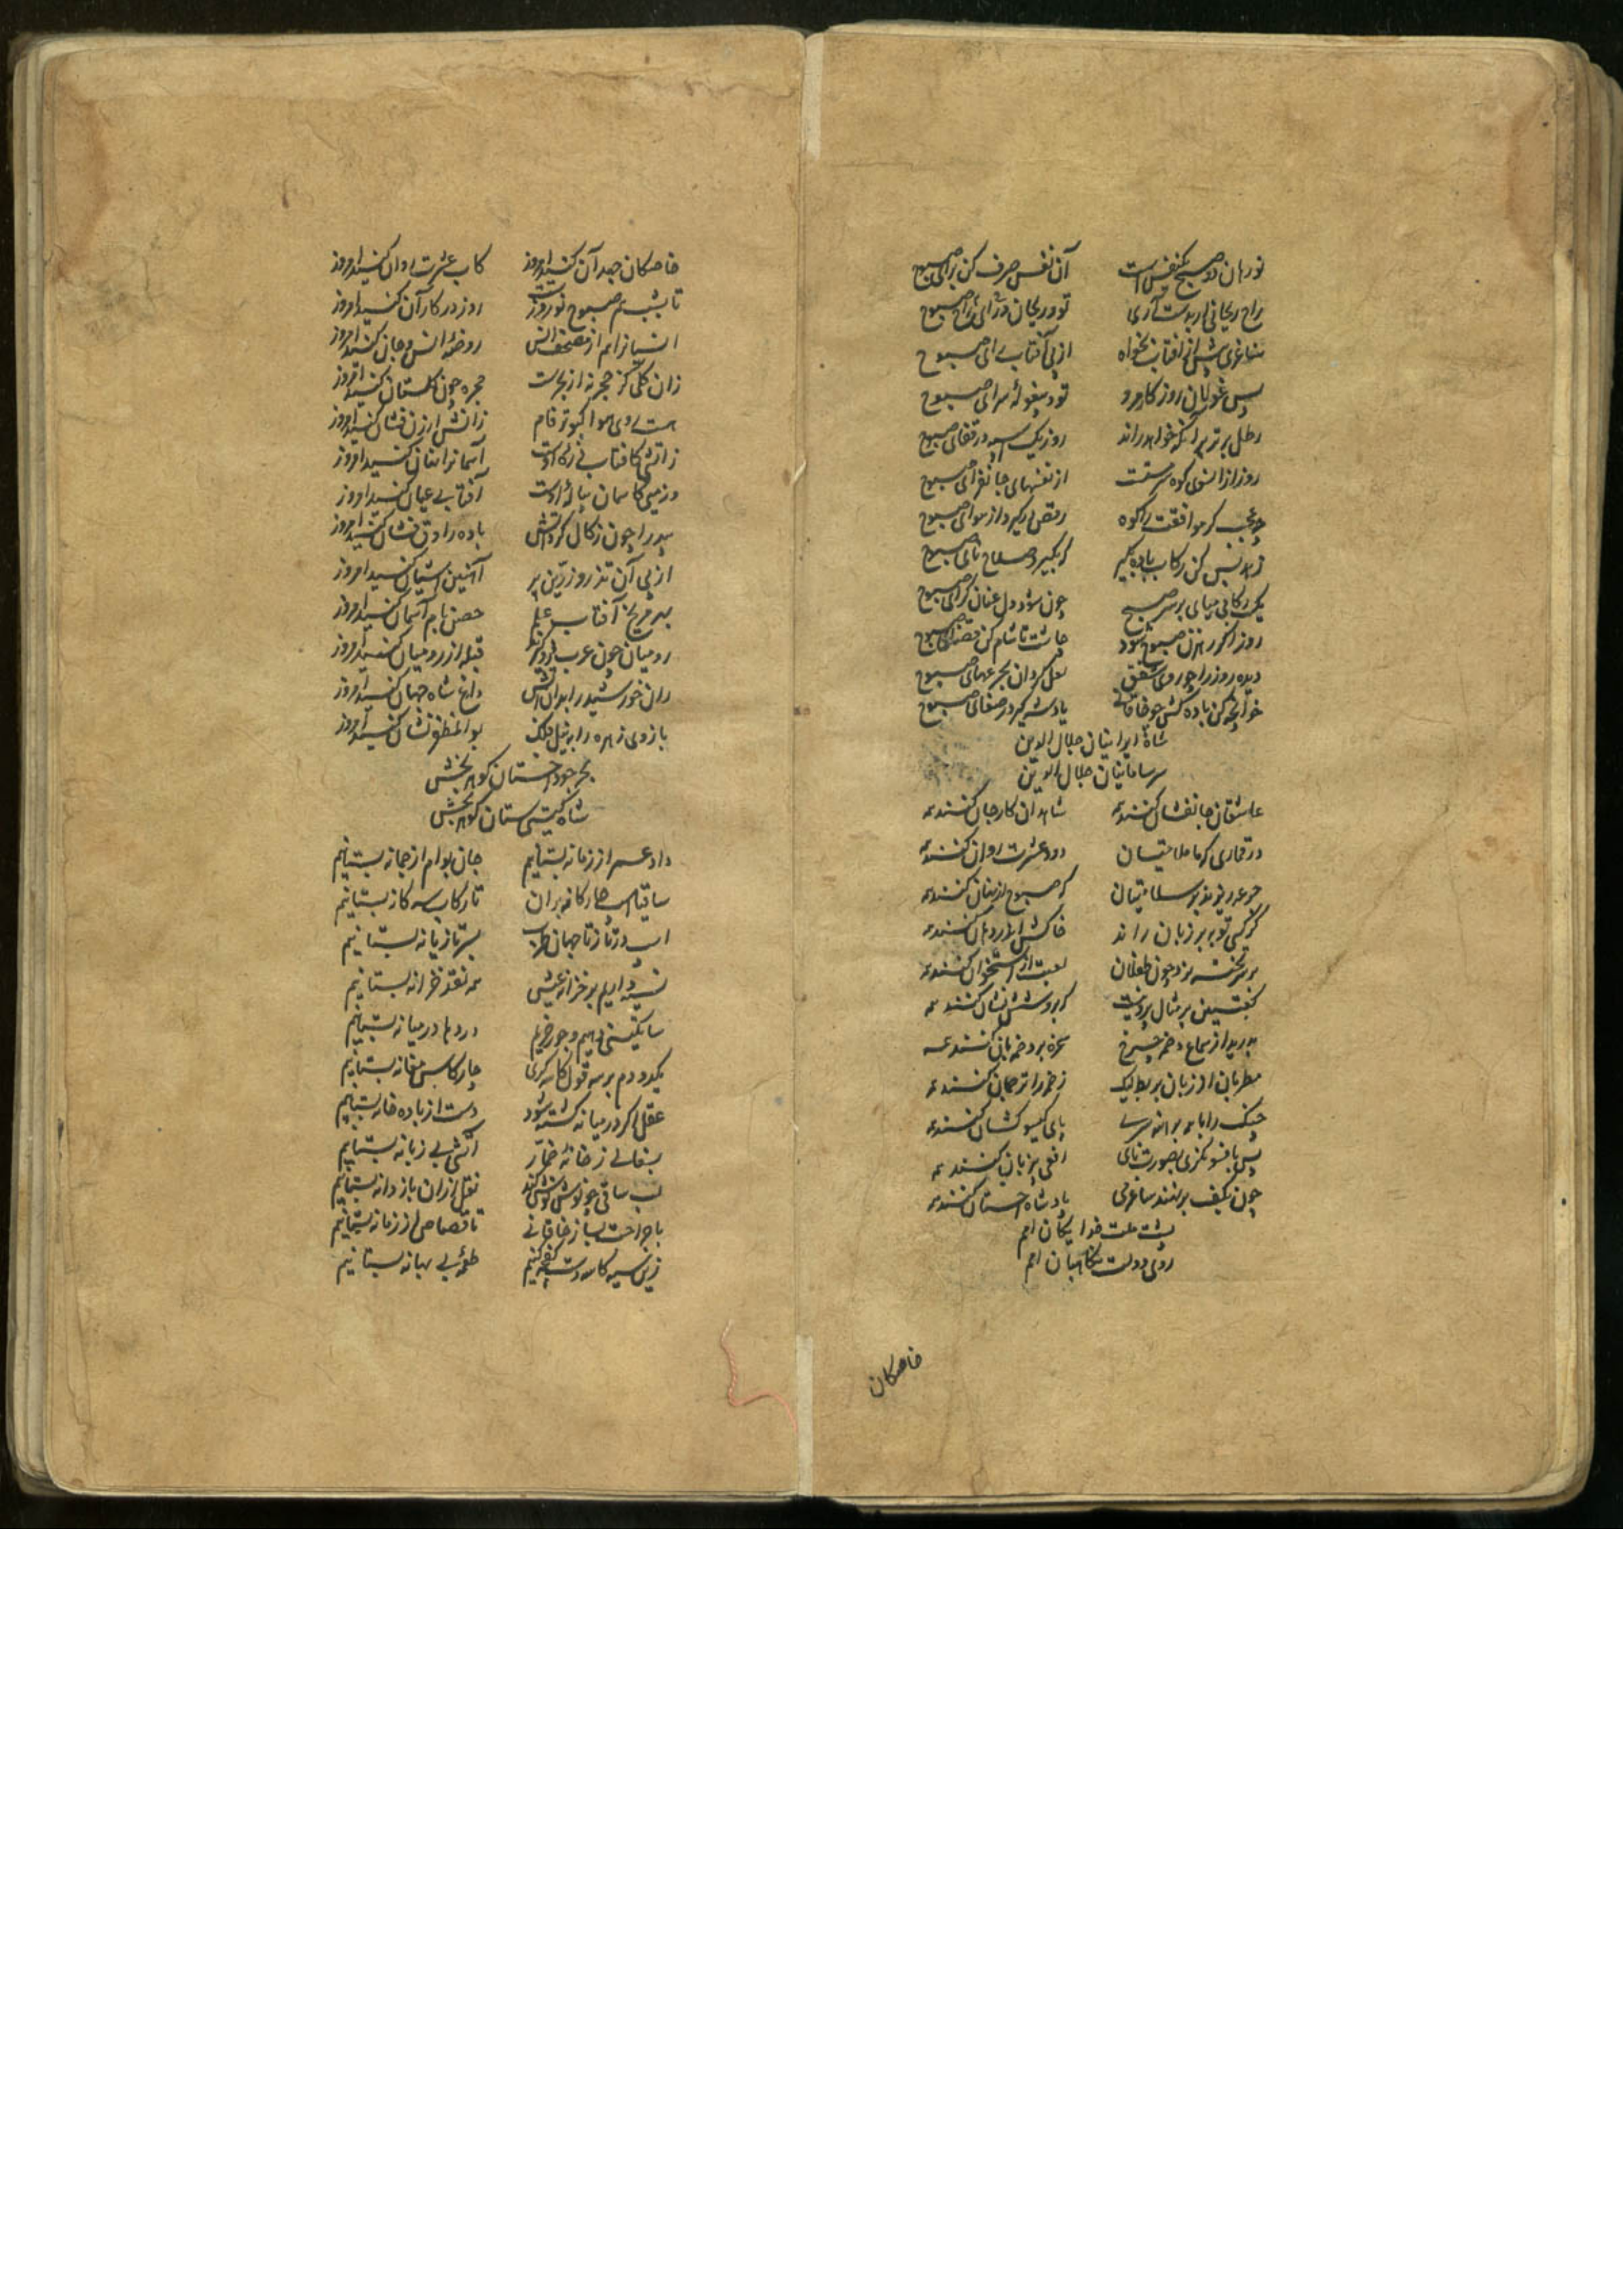 نورهان دو صبح یکنفس است آن نفس صرف کن برای صبوح
راح ریحانی ار بدست آری تو و ریحان و راح و رای صبوح
ساغری پیش از آفتاب بخواه از پی آفتاب رای صبوح
پس غولان روزگار مرو تو و بیغوله سرای صبوح
رطل پرتر بر آنکه خواهد راند روز یک اسپه در قفای صبوح
روز از انسوی کوه سرمست از نفسهای جانفزای صبوح
چه عجب گر موافقت را کوه رقص در گیرد از هوای صبوح
زهد بس کن رکاب باده بگیر گر بگیر و صلاح نای صبوح
یک رکابی مپای بر سر صبح چون شود دل عنان گرای صبوح
روز اگر رهزن صبوح شود چاشت تا شام کن قضای صبوح
دیده روز را چو روی شفق لعل گردان بجرعهای صبوح
خوانچه کن باده کش چو خاقانی یاد شه گیر در صفای صبوح
شاه ایرانیان جلال الدین
سر سامانیان جلال الدین
عاشقان جانفشان کنند همه شاهدان کار جان کنند همه
در قماری که با ملامتیان دود عشرت روان کنند همه
جرعه ریزند بر سلامتیان که صبوح از نهان کنند همه
گر کسی توبه بر زبان راند خاکش اندر دهان کنند همه
بر سر تخته نرد چون طفلان لعبت از استخوان کنند همه
کعبتین بر مثال پروین است که برو شش نشان کنند همه
بدرید از سماع زخمه چرخ سخره بر زخمه بان کنند همه
مطربان از زبان بربط گنگ زخمه را ترجمان کنند همه
چنگ را با همه برهنه سری پای گیسوکشان کنند همه
پس بافسونگری بصورت نای افعی بی زبان کنند همه
چون بکف برنهند ساغر می یاد شاه اخستان کنند همه
پشت ملت خدایگان امم
روی دولت نگاهبان امم
خاصگان
خاصگان جهد آن کنید امروز کاب عشرت روان کنید امروز
تا بشب هم صبوح نوروز است روز در کار آن کنید امروز
انسیانرا هم از مصحف انس روضه انس و جان کنید امروز
زان گلی کز حجر نه از شجر است حجره چون گلستان کنید امروز
هست روی هوا کبوتر فام زاتش ارزن فشان کنید امروز
زاتشی کافتاب ذره اوست آسمانرا نهان کنید امروز
وز میی کاسمان پیاله اوست آفتابی عیان کنید امروز
بید را چون زکال کرد آتش باده راوق فشان کنید امروز
از پی آن تذرو زرین پر آهنین آشیان کنید امروز
بهر مریخ آفتاب علم حصن بام آسمان کنید امروز
رومیان چون عرب فرو گیرند قبله از رومیان کنید امروز
ران خورشید را بدان آتش داغ شاه جهان کنید امروز
بازوی زهره را به نیل فلک بوالمظفر نشان کنید امروز
بحر جود اخستان گوهر بخش
شاه گیتی ستان گوهر بخش
داد عمر از زمانه بستانیم جان بوام از چمانه بستانیم
ساقیا اسب چارگانه بران تا رکاب سه گانه بستانیم
اسب درتاز تا جهان طرب بسر تازیانه بستانیم
نسیه داریم بر خزانه عیش همه نقد از خزانه بستانیم
سا تگینی دهیم و جور خوریم دردها در میانه بستانیم
یکدو دم بر سه قول کاسه گری چار کاس مغانه بستانیم
عقل اگر در میانه کشته شود دیت از باده خانه بستانیم
بسفالی ز خانه خمار آتش بی زبانه بستانیم
لب ساقی چو نوش نوش کند نقل ازان ناردانه بستانیم
با جراحت بساز خاقانی تا قصاص از زمانه بستانیم
زین سیه کاسه دست کفچه کنیم طعمه بی بهانه بستانیم